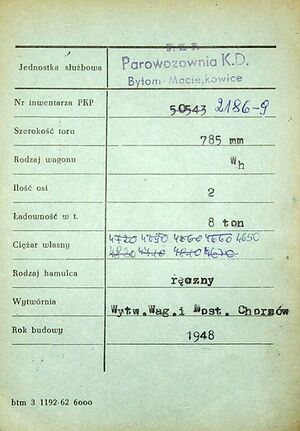 P.K.P.
Jednostka służbowa Parowozownia K.D.
Bytom-Maciejkowice
Nr inwentarza PKP 50543 2186-9
Szerokość toru 785 mm
Rodzaj wagonu Wh
Ilość osi 2
Ładowność w t. 8 ton
Ciężar własny 4720 4690 4660 4660 4650
4710 4810 4670
Rodzaj hamulca ręczny
Wytwórnia Wytw.Wag.i Most. Chorzów
Rok budowy 1948
btm 3 1192-62 6000